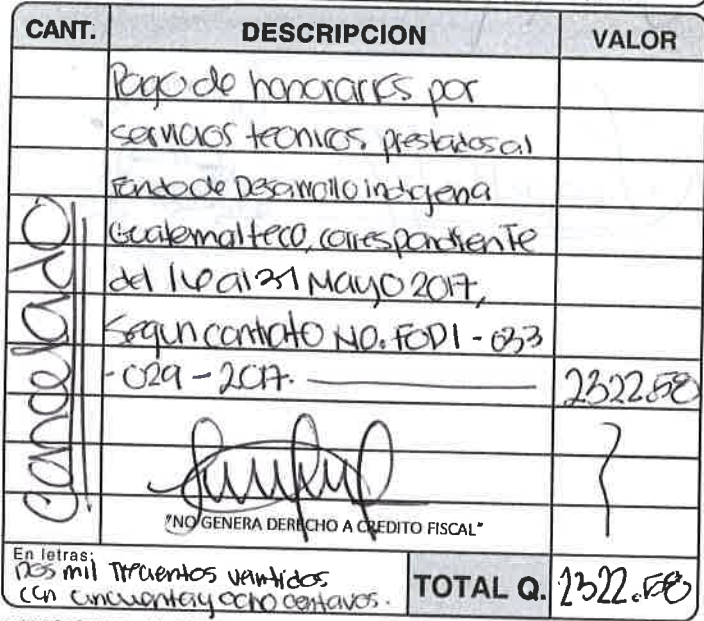 CANT. DESCRIPCION VALOR
Pago de honorarios por
servicios tecnicos prestados al
Fondo de Desarrollo indigena
Guatemalteco, correspondiente
del 16 al 31 Mayo 2017,
Segun contrato NO. FODI - 033
- 029 - 2017. 2322.58
cancelado
"NO GENERA DERECHO A CREDITO FISCAL"
En letras:
Dos mil Trecientos veintidos
con cincuenta y ocho centavos.
TOTAL Q. 2322.58